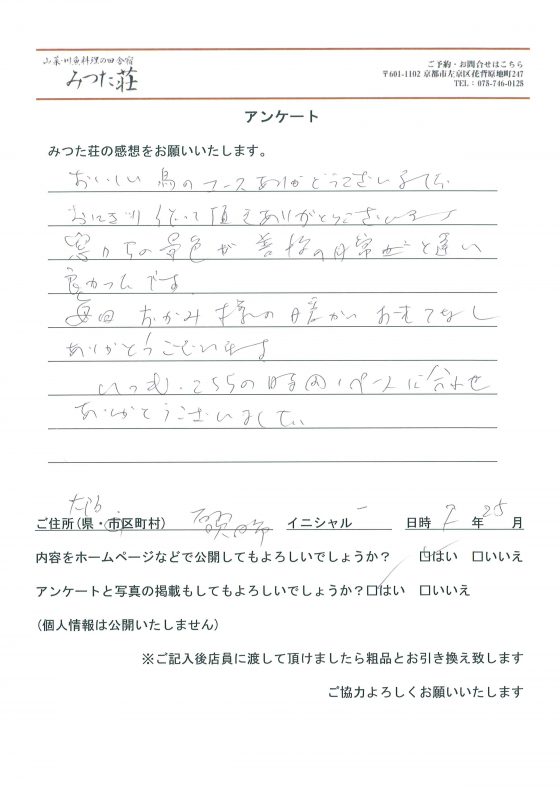 山菜・川魚料理の田舎宿
みつた荘
ご予約・お問合せはこちら
〒601-1102 京都市左京区花脊原地町247
TEL：075-746-0128
アンケート
みつた荘の感想をお願いいたします。
おいしい鳥のコースありがとうございました。
おにぎり 頂きありがとうございます
窓からの景色が普段の日常と違い
良かったです
毎回 おかみ様の暖かいおもてなし
ありがとうございます
いつも、こちらの時間・ペースに合わせ
ありがとうございました。
ご住所(県・市区町村) イニシャル 日時 年 25 月
内容をホームページなどで公開してもよろしいでしょうか？ □はい □いいえ
アンケートと写真の掲載もしてもよろしいでしょうか？□はい □いいえ
(個人情報は公開いたしません)
※ご記入後店員に渡して頂けましたら粗品とお引き換え致します
ご協力よろしくお願いいたします